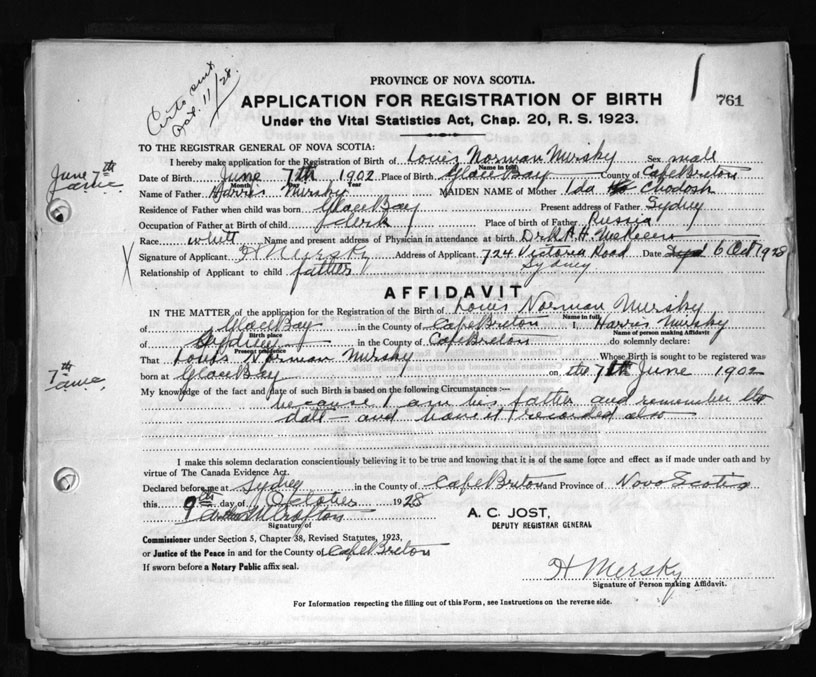 Certs sent
Oct. 11/28.
PROVINCE OF NOVA SCOTIA.
APPLICATION FOR REGISTRATION OF BIRTH
761
Under the Vital Statistics Act, Chap. 20, R. S. 1923.
TO THE REGISTRAR GENERAL OF NOVA SCOTIA:
I hereby make application for the Registration of Birth of Louis Norman Mersky Sex male
Name in full
June 7th
Date of Birth June 7th 1902 Place of Birth Glace Bay County of Cape Breton
Month Day Year
Name of Father Harris Mersky MAIDEN NAME of Mother Ida Chodosh
Residence of Father when child was born Glace Bay Present address of Father Sydney
Occupation of Father at Birth of child clerk Place of birth of Father Russia
Race whitt Name and present address of Physician in attendance at birth Dr.
Signature of Applicant H Mersky Address of Applicant 724 Victoria Road Date 6 Oct 1928
Sydney
Relationship of Applicant to child father
AFFIDAVIT
IN THE MATTER of the application for the Registration of the Birth of Louis Norman Mersky
Name in full
of Glace Bay in the County of Cape Briton I, Harris Mersky
Birth place Name of person making Affidavit
of Sydney in the County of Cape Breton do solemnly declare:
Present residence
That Louis Norman Mersky Whose Birth is sought to be registered was
7th
born at Glace Bay on the 7th June 1902
My knowledge of the fact and date of such Birth is based on the following Circumstances :—
because I am his father and remember the
date and have it recorded also
I make this solemn declaration conscientiously believing it to be true and knowing that it is of the same force and effect as if made under oath and by
virtue of The Canada Evidence Act.
Declared before me at Sydney in the County of Cape Briton and Province of Nova Scotia
this 9th day of October 1928
A. C. JOST,
DEPUTY REGISTRAR GENERAL
Signature of
Commissioner under Section 5, Chapter 38, Revised Statutes, 1923,
or Justice of the Peace in and for the County of Cape Breton
If sworn before a Notary Public affix seal.
H Mersky
Signature of Person making Affidavit.
For Information respecting the filling out of this Form, see Instructions on the reverse side.